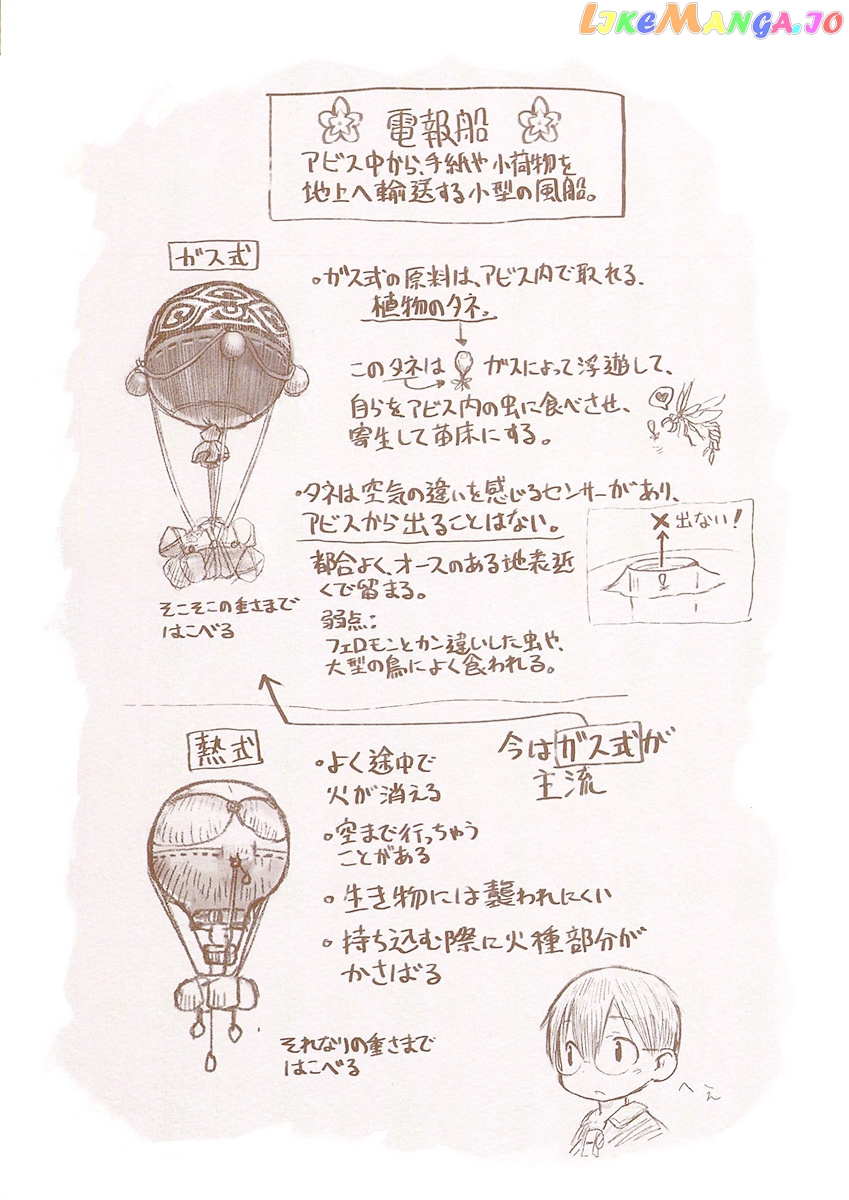 LIKEMANGA.IO
電報船
アビス中から、手紙や小荷物を
地上へ輸送する小型の風船。
ガス式
・ガス式の原料は、アビス内で取れる、
植物のタネ。
このタネは ガスによって浮遊して、
自らをアビス内の虫に食べさせ、
寄生して苗床にする。
・タネは空気の違いを感じるセンサーがあり、
アビスから出ることはない。
×出ない!
都合よく、オースのある地表近
くで留まる。
弱点:
フェロモンとカン違いした虫や、
大型の鳥によく食われる。
そこそこの重さまで
はこべる
今はガス式が
主流
熱式
・よく途中で
火が消える
・空まで行っちゃう
ことがある
・生き物には襲われにくい
・持ち込む際に火種部分が
かさばる
それなりの重さまで
はこべる
へぇ